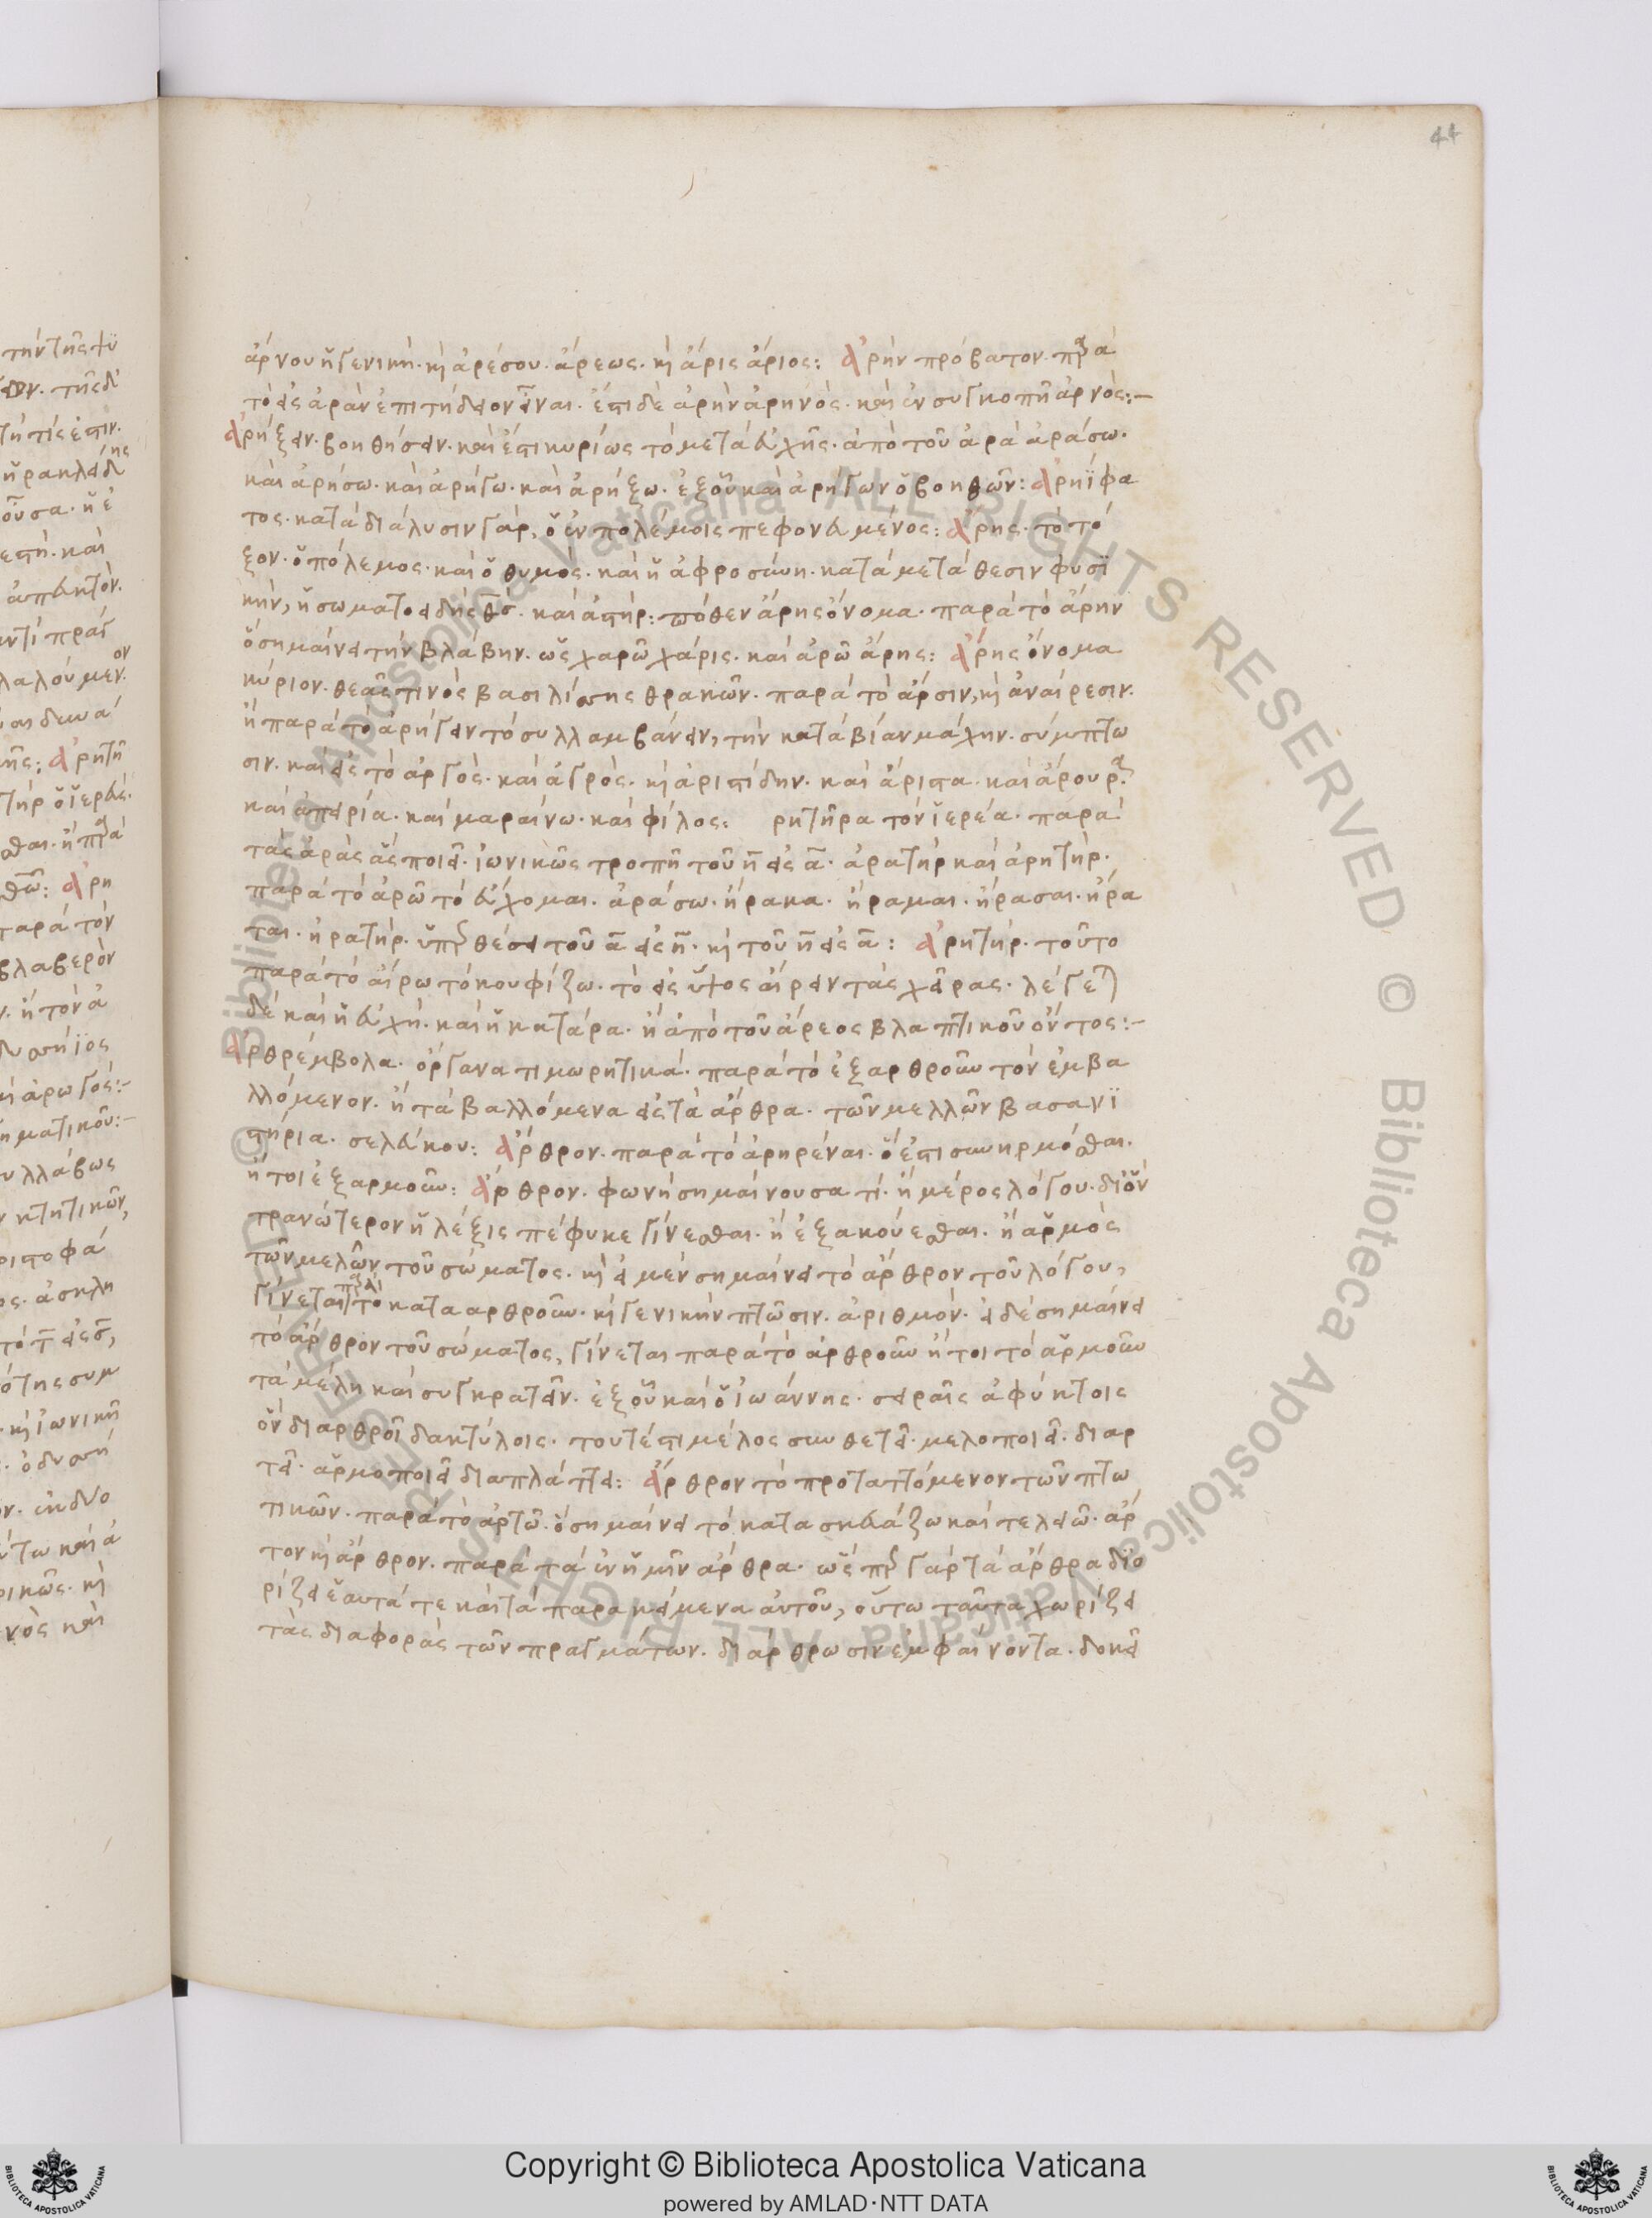 44
ἄρνου ἡ γενικὴ. κὶ ἀρέσου. ἄρεως. κὶ ἄρις ἄριος: ἀρὴν πρόβατον. πρα
τὸ εἰς ἀρὰν ἐπιτήδειον εἶναι. ἔστι δὲ ἀρὴν ἀρηνὸς. καὶ ἐν συγκοπῆ ἀρνὸς:-
ἀρήξειν. βοηθήσειν. καὶ ἔστι κυρίως τὸ μετὰ εὐχῆς. ἀπὸ τοῦ ἀρὰ ἀράσω.
καὶ ἀρήσω. καὶ ἀρήγω. καὶ ἀρήξω. ἐξοῦ καὶ ἀρήγων ὁ βοηθῶν: ἀρηΐφα
τος. κατὰ διάλυσιν γὰρ, ὁ ἐν πολέμοις πεφονευμένος: ἄρης. τὸ τό
ξον. ὁ πόλεμος. καὶ ὁ θυμὸς. καὶ ἡ ἀφροσύνη. κατὰ μετάθεσιν φυσϊ
κὴν, ἡ σωματοειδὴς θεός. καὶ ἀστήρ: πόθεν ἄρης ὄνομα. παρὰ τὸ ἄρην
ὃ σημαίνει τὴν βλάβην. ὡς χαρῶ χάρις. καὶ ἀρῶ ἄρης: ἄρης ὄνομα
κύριον. θεᾶς τινὸς βασιλίσσης θρακῶν. παρὰ τὸ ἄρσιν, κὶ ἀναίρεσιν.
ἢ παρὰ τὸ ἀρήγειν τὸ συλλαμβάνειν, τὴν κατὰ βίαν μάχην. σύμπτω
σιν. καὶ εἰς τὸ ἀργὸς. καὶ ἀγρὸς. κὶ ἀριστίδην. καὶ ἄριστα. καὶ ἄρουρα.
καὶ ἀπειρία. καὶ μαραίνω. καὶ φίλος: ρητῆρα τὸν ἱερέα. παρὰ
τὰς ἀρὰς ἃς ποιεῖ. ἰωνικῶς τροπῆ τοῦ η εἰς α. ἀρατὴρ καὶ ἀρητὴρ.
παρὰ τὸ ἀρῶ τὸ εὔχομαι. ἀράσω. ἤρακα. ἤραμαι. ἤρασαι. ἤρα
ται. ἠρατήρ. ὑπερθέσει τοῦ α εἰς η. κὶ τοῦ η εἰς α: ἀρητὴρ. τοῦτο
παρὰ τὸ αἴρω τὸ κουφίζω. τὸ εἰς ὕψος αἴρειν τὰς χεῖρας. λέγεται
δὲ καὶ ἡ εὐχή. καὶ ἡ κατάρα. ἢ ἀπὸ τοῦ ἄρεος βλαπτικοῦ ὄντος:-
ἀρθρέμβολα. ὄργανα τιμωρητικά. παρὰ τὸ ἐξαρθροῦν τὸν ἐμβα
λλόμενον. ἢ τὰ βαλλόμενα εἰς τὰ ἄρθρα. τῶν μελλῶν βασανϊ
στήρια. σελεύκου: ἄρθρον. παρὰ τὸ ἀρηρέναι. ὅ ἐστι συνηρμόσθαι.
ἤτοι ἐξαρμοῦν: ἄρθρον. φωνὴ σημαίνουσα τί. ἢ μέρος λόγου. δι ὃν
τρανώτερον ἡ λέξις πέφυκε γίνεσθαι. ἢ ἐξακούεσθαι. ἢ ἁρμὸς
τῶν μελῶν τοῦ σώματος. κὶ εἰ μὲν σημαίνει τὸ ἄρθρον τοῦ λόγου,
γίνεται παρὰ τὸ καταρθροῦν. κὶ γενικὴν πτῶσιν. ἀριθμόν. εἰ δὲ σημαίνει
τὸ ἄρθρον τοῦ σώματος, γίνεται παρὰ τὸ ἀρθροῦν ἤτοι τὸ ἁρμοῦν
τὰ μέλη καὶ συγκρατεῖν. ἐξοῦ καὶ ὁ ἰωάννης. σειραῖς ἀφύκτοις
οὖν διαρθροῖ δακτύλοις. τουτέστι μέλος συνθετεῖ. μελοποιεῖ. διαρ
τεῖ. ἁρμοποιεῖ διαπλάττει: ἄρθρον τὸ προτατόμενον τῶν πτω
τικῶν. παρὰ τὸ ἀρτῶ. ὃ σημαίνει τὸ κατασκευάζω καὶ τελειῶ. ἄρ
τον κὶ ἄρθρον. παρὰ τὰ ἐν ἡμῖν ἄρθρα. ὥσπερ γὰρ τὰ ἄρθρα διο
ρίζει ἑαυτά τε καὶ τὰ παρακείμενα αὐτοῦ, οὕτω ταῦτα χωρίζει
τὰς διαφορὰς τῶν πραγμάτων. διάρθρωσιν ἐμφαίνοντα. δοκεῖ
© Biblioteca Apostolica Vaticana ALL RIGHTS RESERVED
Copyright © Biblioteca Apostolica Vaticana
powered by AMLAD・NTT DATA